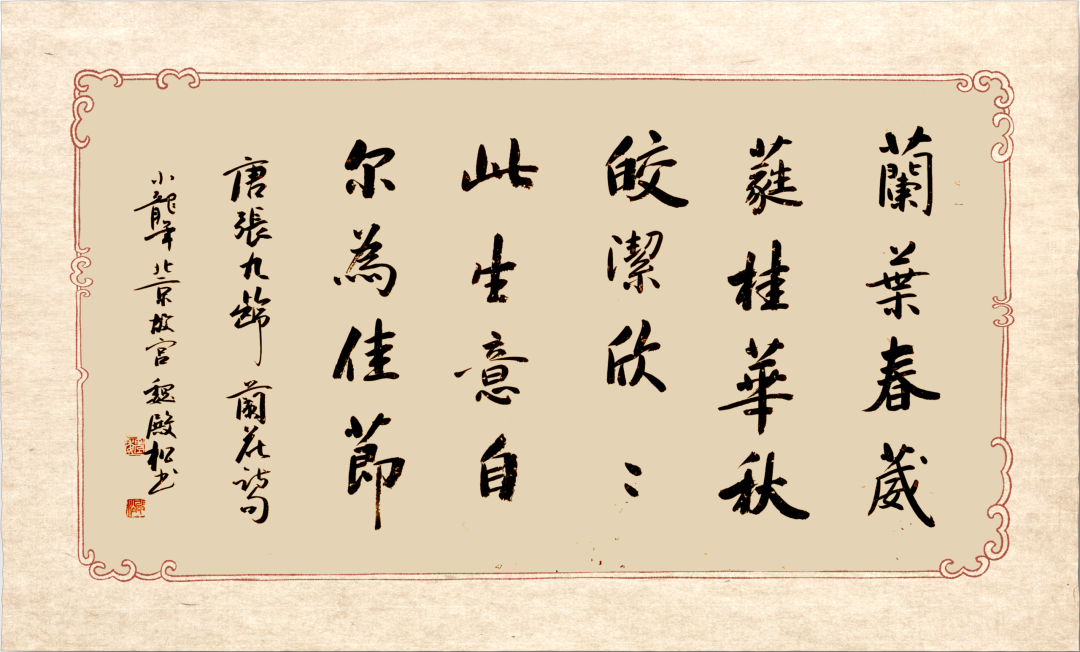 蘭葉春葳
蕤桂華秋
皎潔欣〻
此生意自
尔為佳莭
唐張九齡 蘭花詩句
小龍年北京故宮魏殿松书